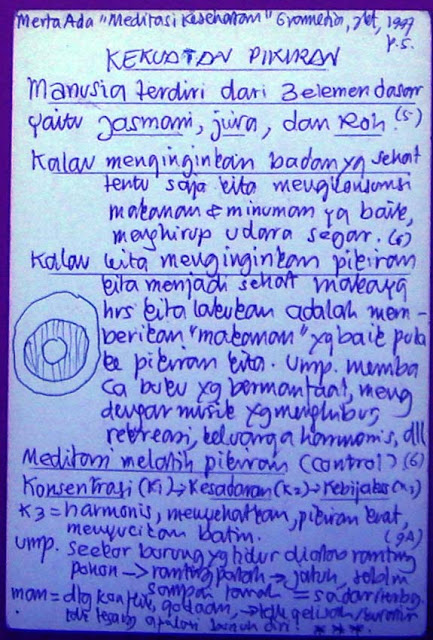 Merta Ada "Meditasi Kesehatan" Gramedia, Jkt, 1997
p.5.
KEKUATAN PIKIRAN
Manusia terdiri dari 3 elemen dasar
yaitu Jasmani, jiwa, dan Roh. (5)
Kalau menginginkan badan yg sehat
tentu saja kita mengkonsumsi
makanan & minuman yg baik,
menghirup udara segar. (6)
Kalau kita menginginkan pikiran
kita menjadi sehat makaya
hrs kita lakukan adalah mem-
berikan "makanan" yg baik pula
ke pikiran kita. Ump. memba
ca buku yg bermanfaat, meng
dengar musik yg menghibur,
rekreasi, keluarga harmonis, dll
Meditasi melatih pikiran (control) (6)
Konsentrasi (K1) → Kesadaran (K2) → Kebijaks (K3)
K3 = harmonis, menyehatkan, pikiran kuat,
menyucikan batin. (9A)
Ump. Seekor burung yg tidur diatas ranting
pohon → ranting patah → jatuh, sebelum
sampai tanah = sadar terbang.